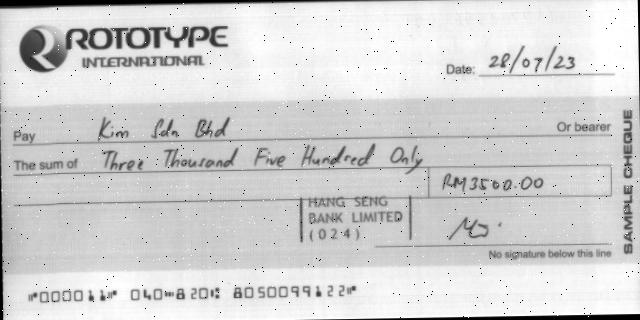 ROTOTYPE
INTERNATIONAL
Date: 28/07/23
Pay Kim Sdn Bhd Or bearer
The sum of Three Thousand Five Hundred Only
RM3500.00
HANG SENG
BANK LIMITED
(024)
No signature below this line
SAMPLE CHEQUE
"000011" 040 820 8050099122"